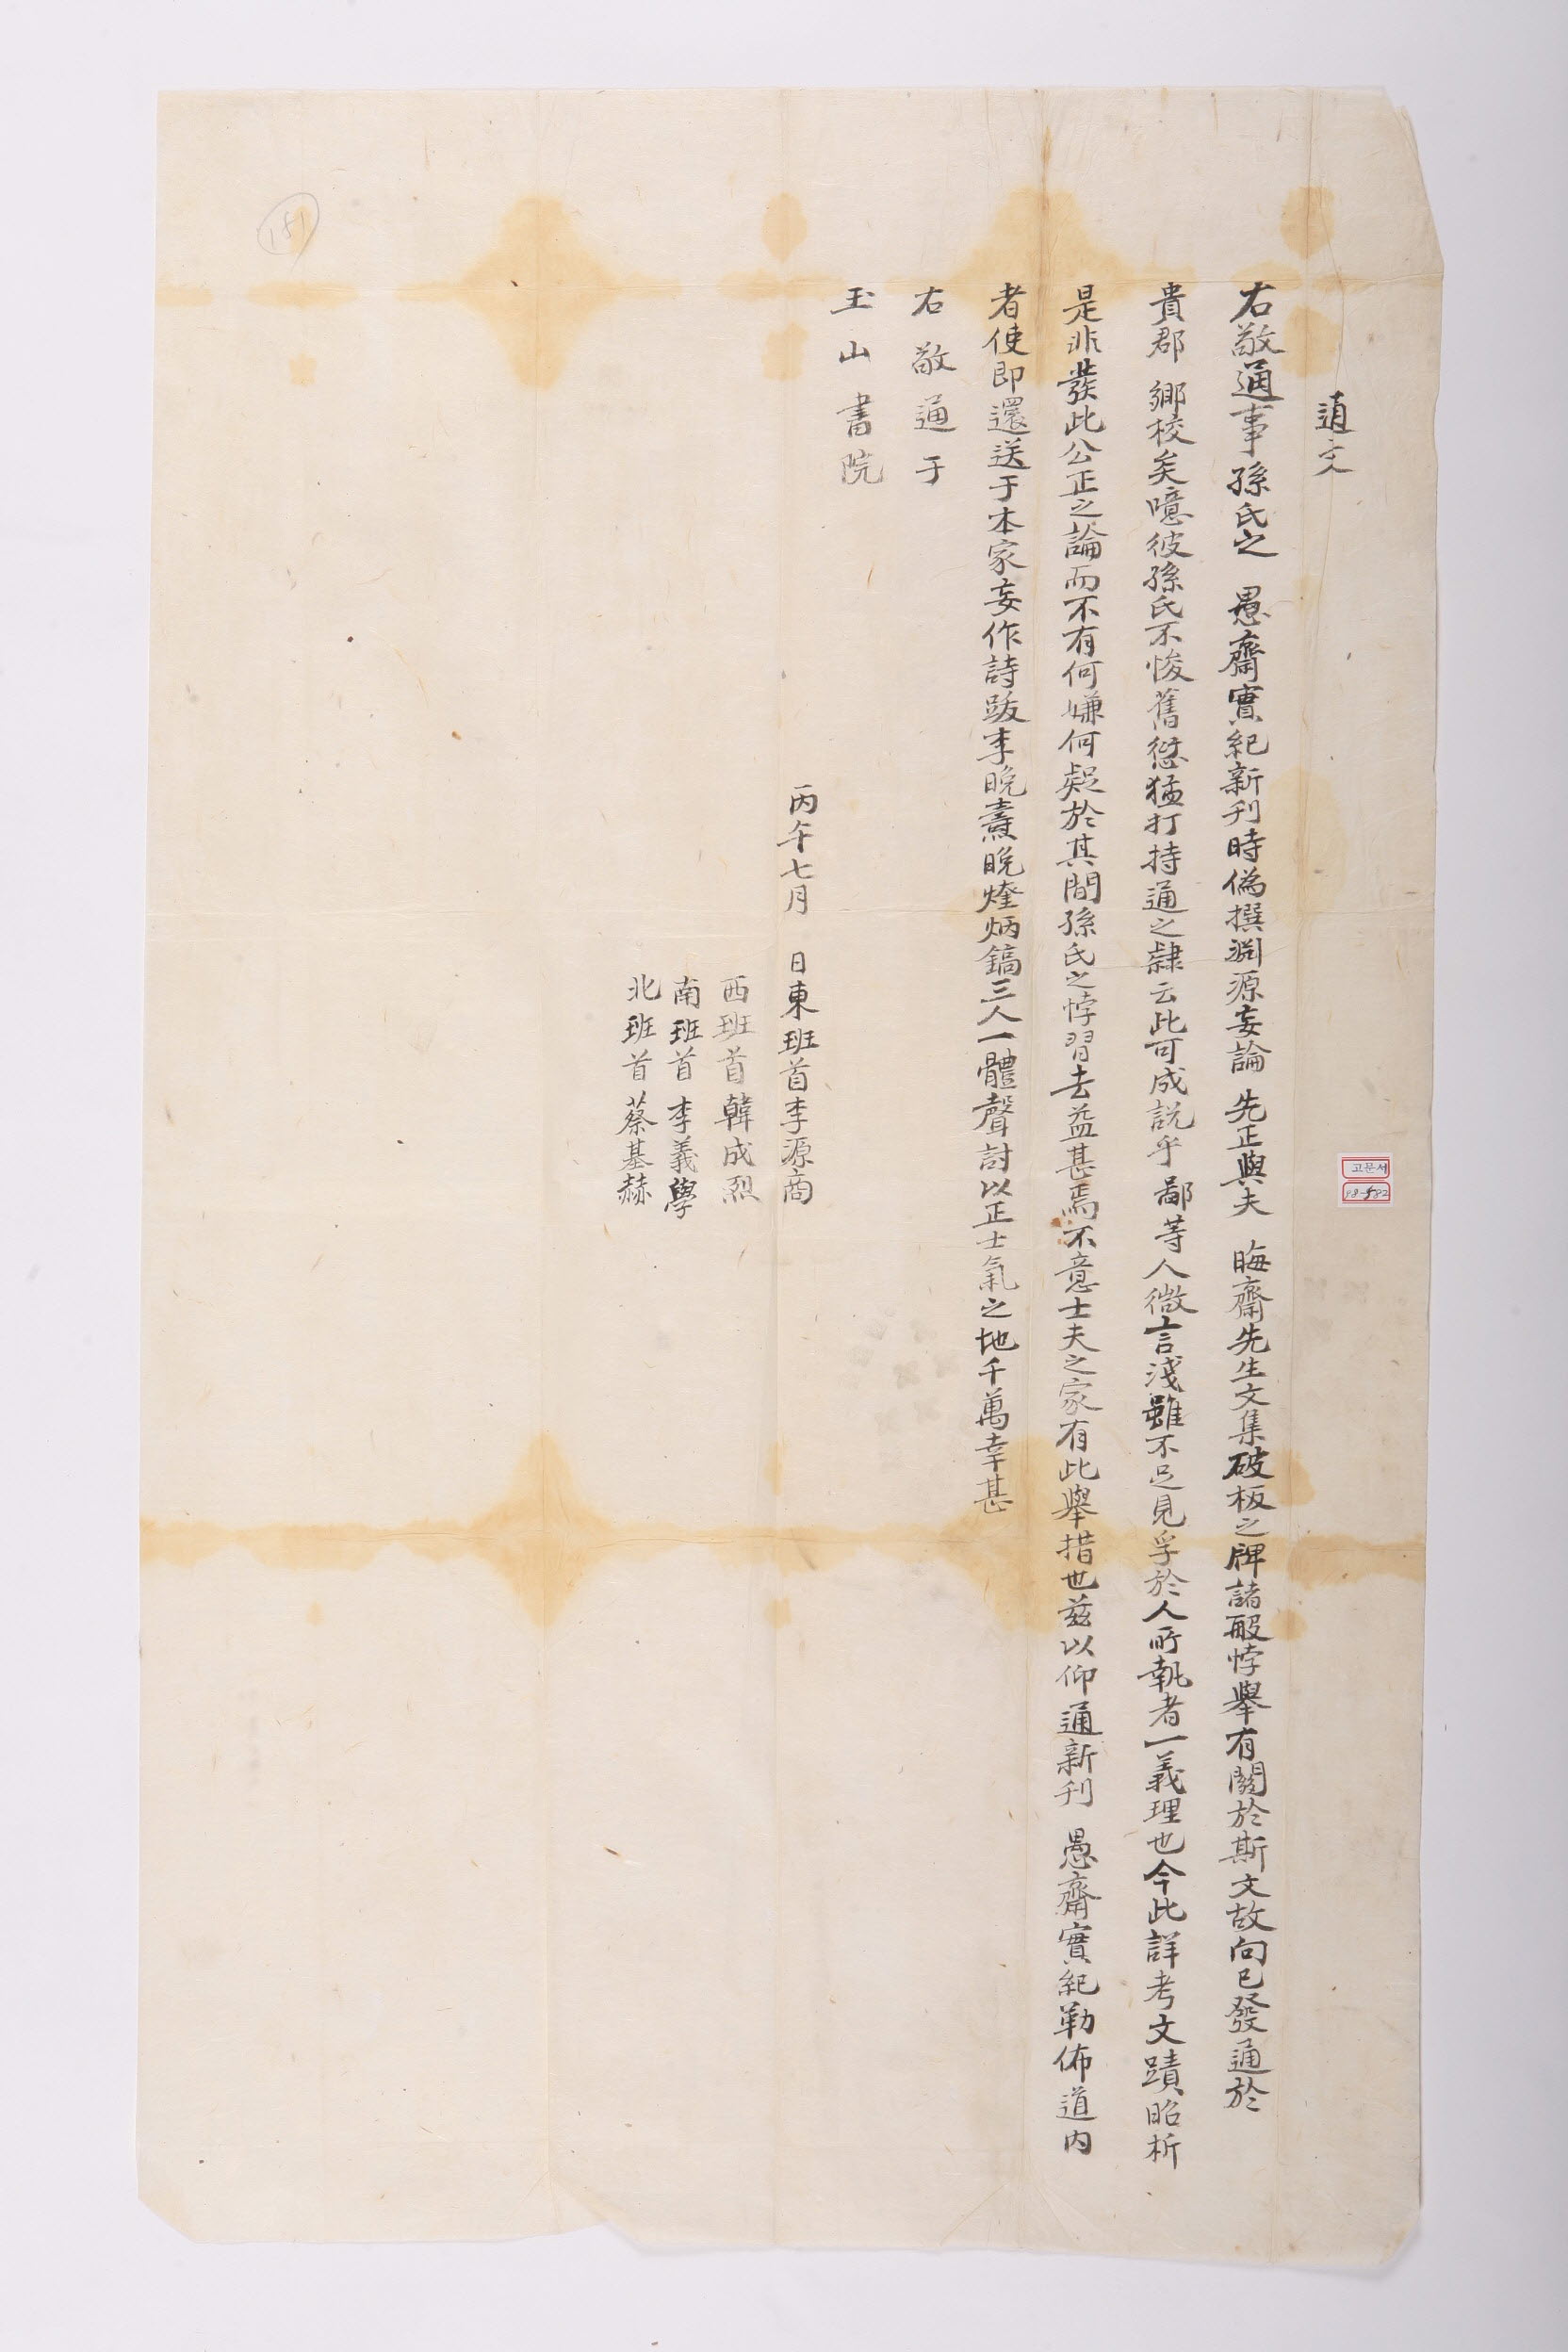 通文
右敬通事孫氏之 愚齋實紀新刊時僞撰淵源妄論 先正與夫 晦齋先生文集破板之牌諸般悖擧有關於斯文故向已發通於
貴郡 鄕校矣噫彼孫氏不悛舊愆猛打持通之隷云此可成説乎 鄙等人微言淺雖不足見孚於人所執者一義理也今此詳考文蹟昭析
是非發此公正之論而不有何嫌何疑於其間孫氏之悖習去益甚焉不意士夫之家有此擧措也玆以仰通新刊 愚齋實紀勒佈道内
者使即還送于本家妄作詩跋李晩燾晩煃炳鎬三人一體聲討以正士氣之地千萬幸甚
右敬通于
玉山書院
丙午七月 日東班首李源商
西班首韓成烈
南班首李義學
北班首蔡基赫
151
고문서
98-482